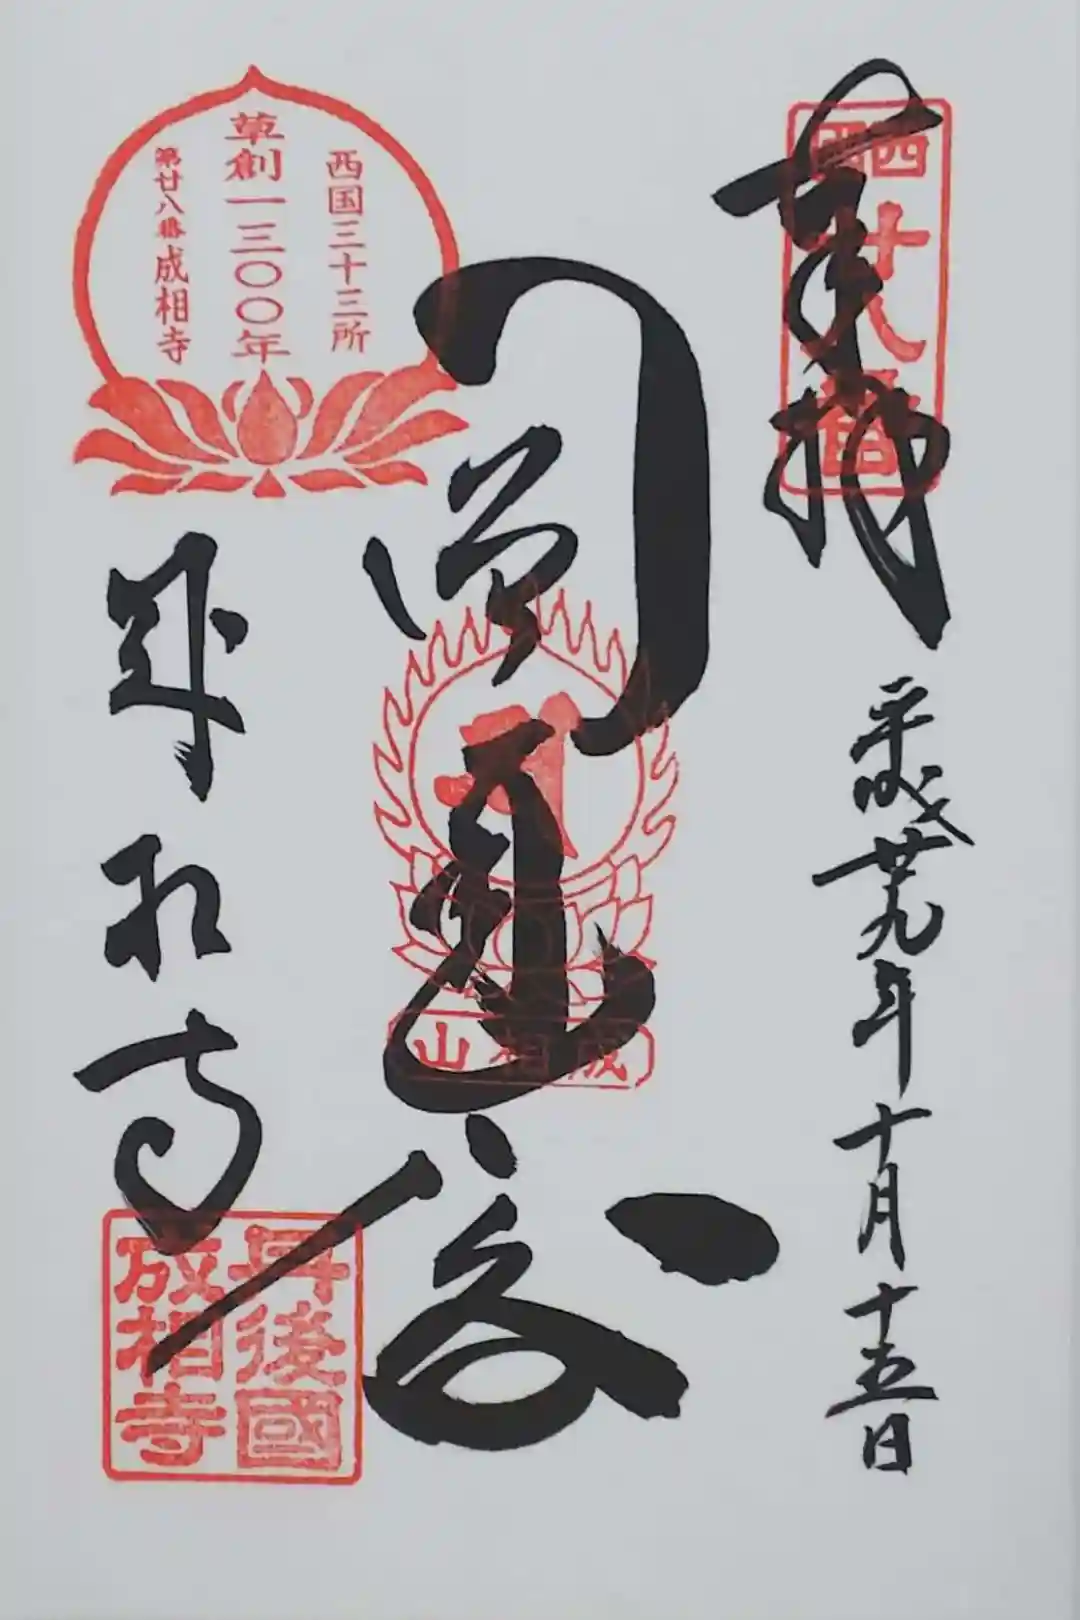 奉拝
西国
廿八番
平成廿九年十月十五日
圓通殿
成相山
西国三十三所
草創一三〇〇年
第廿八番成相寺
成相寺
丹後國
成相寺